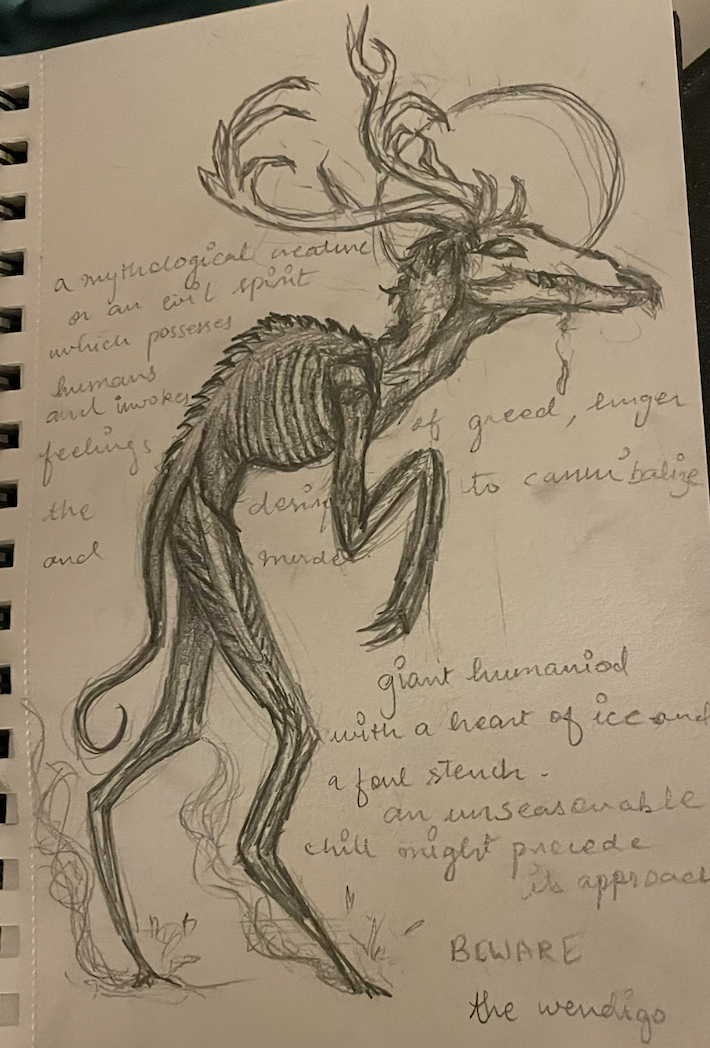 a mythological creature
or an evil spirit
which possesses
humans
and invokes
feelings of greed, hunger
the desire to cannibalize
and murder
giant humaniod
with a heart of ice and
a foul stench.
an unseasonable
chill might precede
its approach
BEWARE
the wendigo